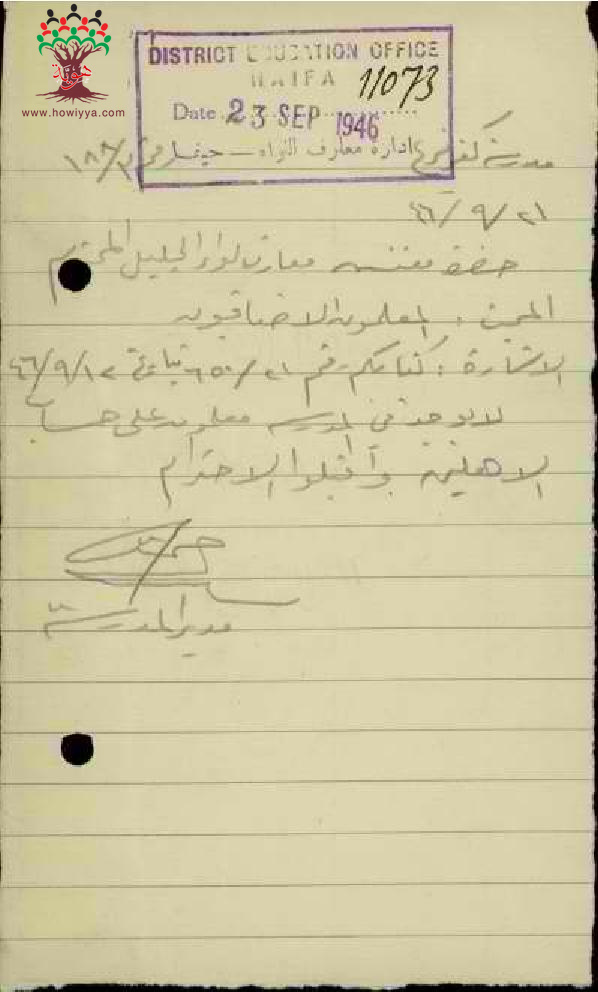 هوية
www.howiyya.com
DISTRICT EDUCATION OFFICE
HAIFA
11073
Date 23 SEP 1946
ادارة معارف اللواء — حيفا
مدرسة كفر
٢١/٩/٤٦
حضرة مفتش معارف لواء الجليل المحترم
المبحث : المعلمون الاضافيون
الاشارة : كتابكم رقم
لا يوجد في المدرسة معلمون على حساب
الاهلين واقبلوا الاحترام
مدير المدرسة